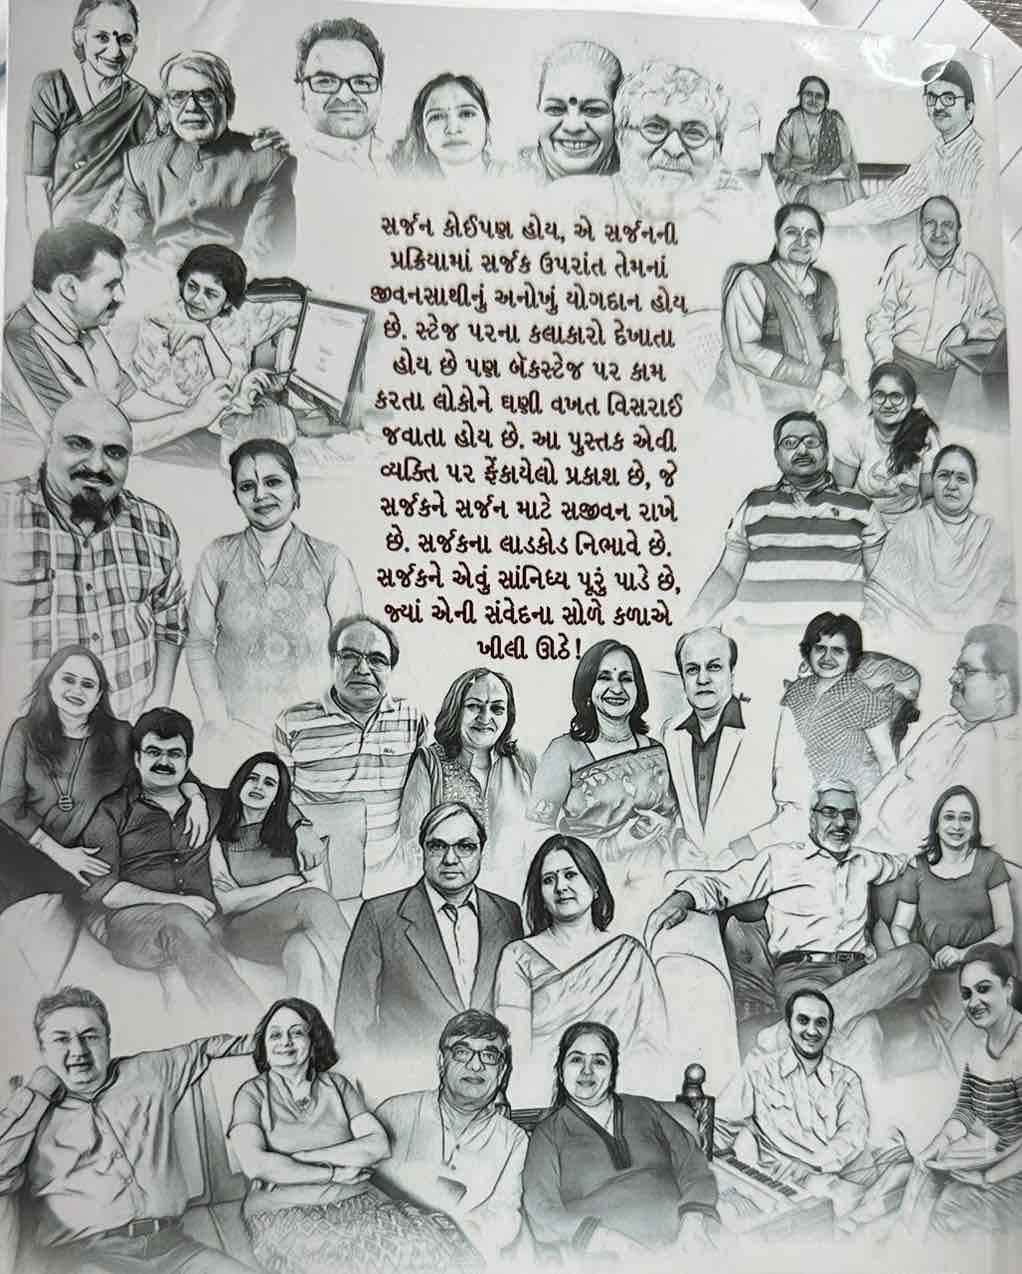 સર્જન કોઈપણ હોય, એ સર્જનની
પ્રક્રિયામાં સર્જક ઉપરાંત તેમનાં
જીવનસાથીનું અનોખું યોગદાન હોય
છે. સ્ટેજ પરના કલાકારો દેખાતા
હોય છે પણ બૅકસ્ટેજ પર કામ
કરતા લોકોને ઘણી વખત વિસરાઈ
જવાતા હોય છે. આ પુસ્તક એવી
વ્યક્તિ પર ફેંકાયેલો પ્રકાશ છે, જે
સર્જકને સર્જન માટે સજીવન રાખે
છે. સર્જકના લાડકોડ નિભાવે છે.
સર્જકને એવું સાંનિધ્ય પૂરું પાડે છે,
જ્યાં એની સંવેદના સોળે કળાએ
ખીલી ઊઠે!